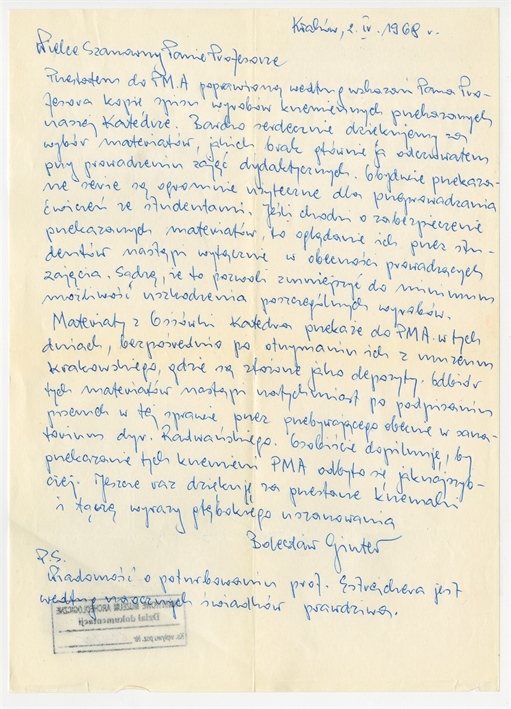 Kraków, 2. IV. 1968 r.
Wielce Szanowny Panie Profesorze
Przesłałem do PMA poprawioną według wskazań Pana Pro-
fesora kopię spisu wyrobów krzemiennych przekazanych
naszej Katedrze. Bardzo serdecznie dziękujemy za
wybór materiałów, jakich brak głównie ja odczuwałem
przy prowadzeniu zajęć dydaktycznych. Obydwie przekaza-
ne serie są ogromnie użyteczne dla przeprowadzania
ćwiczeń ze studentami. Jeśli chodzi o zabezpieczenie
przekazanych materiałów, to oglądanie ich przez stu-
dentów nastąpi wyłącznie w obecności prowadzących
zajęcia. Sądzę, że to pozwoli zmniejszyć do minimum
możliwość uszkodzenia poszczególnych wyrobów.
Materiały z Ossówki Katedra przekaże do PMA w tych
dniach, bezpośrednio po otrzymaniu ich z muzeum
Krakowskiego, gdzie są złożone jako depozyty. Odbiór
tych materiałów nastąpi natychmiast po podpisaniu
pisemnych w tej sprawie przez przebywającego obecnie w sana-
torium dyr. Radwańskiego. Osobiście dopilnuję, by
przekazanie tych krzemieni PMA odbyło się jak najszyb-
ciej. Jeszcze raz dziękuję za przesłane krzemienie
i łączę wyrazy głębokiego uszanowania
Bolesław Ginter
P.S.
Wiadomość o poturbowaniu prof. Estreichera jest
według naocznych świadków prawdziwa.
MUZEUM ARCHEOLOGICZNE
Dział dokumentacji
Ks. wpływu poz. Nr